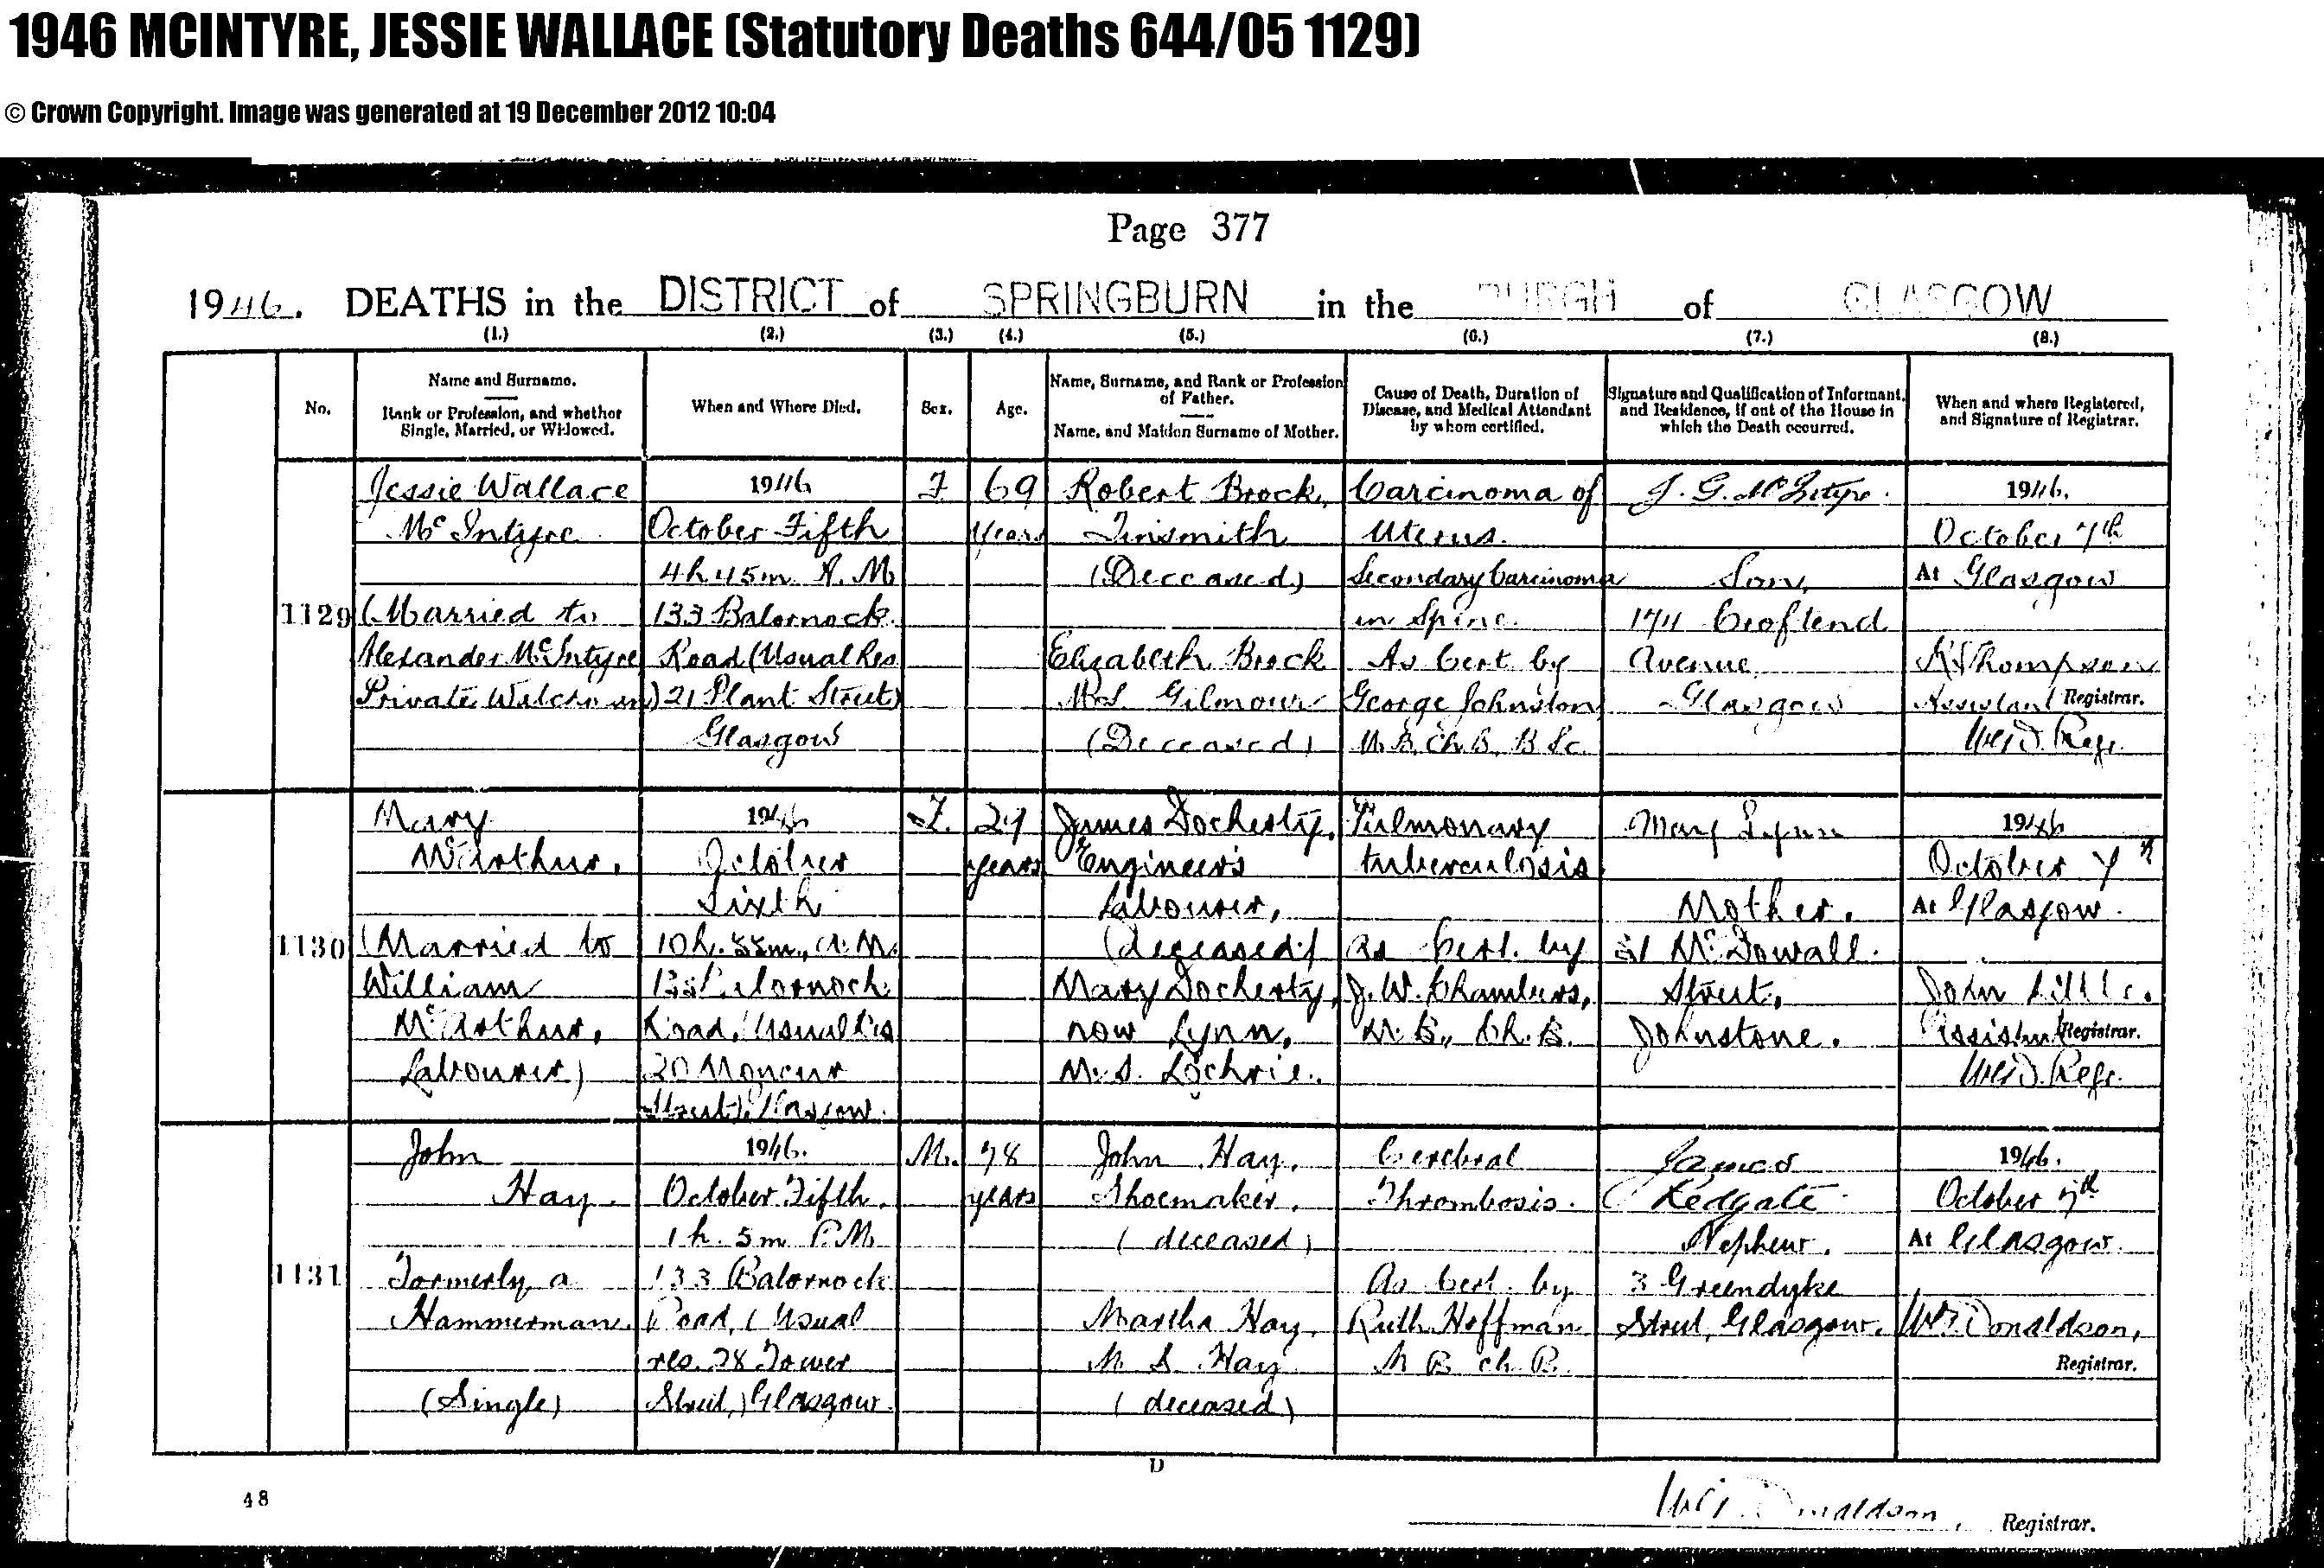 1946 MCINTYRE, JESSIE WALLACE (Statutory Deaths 644/05 1129)
© Crown Copyright. Image was generated at 19 December 2012 10:04
Page 377
1946. DEATHS in the DISTRICT of SPRINGBURN in the BURGH of GLASGOW
(1.) (2.) (3.) (4.) (5.) (6.) (7.) (8.)
No.
Name and Surname.
Rank or Profession, and whether
Single, Married, or Widowed.
When and Where Died.
Sex.
Age.
Name, Surname, and Rank or Profession
of Father.
Name, and Maiden Surname of Mother.
Cause of Death, Duration of
Disease, and Medical Attendant
by whom certified.
Signature and Qualification of Informant,
and Residence, if out of the House in
which the Death occurred.
When and where Registered,
and Signature of Registrar.
1129
Jessie Wallace
McIntyre
(Married to
Alexander McIntyre
Private Watchman)
1946
October Fifth
4h 45m A.M.
133 Balornock
Road (Usual Res
21 Plant Street)
Glasgow
F
69
years
Robert Brock,
Tinsmith
(Deceased)
Elizabeth Brock
M.S. Gilmour
(Deceased)
Carcinoma of
Uterus.
Secondary Carcinoma
in Spine.
As Cert. by
George Johnston
M.B. Ch.B. B.Sc.
J. G. McIntyre.
Son,
174 Croftend
Avenue
Glasgow
1946.
October 7th
At Glasgow
Thompson
Assistant Registrar.
1130
Mary
McArthur.
(Married to
William
McArthur,
Labourer)
1946
October
Sixth
10h. 55m. A.M.
133 Balornock
Road, (Usual Res
20 Moncur
Street), Glasgow.
F.
27
years
James Docherty,
Engineer's
Labourer,
(deceased)
Mary Docherty,
now Lynn,
M.S. Lochrie.
Pulmonary
tuberculosis
as Cert. by
J. W. Chambers,
M.B., Ch.B.
Mary Lynn
Mother.
McDowall
Street,
Johnstone.
1946
October 7th
At Glasgow.
John Little.
Assistant Registrar.
1131
John
Hay.
Formerly a
Hammerman.
(Single)
1946.
October Fifth.
1h. 5m P.M.
133 Balornock
Road, (Usual
res. 78 Tower
Street,) Glasgow.
M.
78
years
John Hay.
Shoemaker.
(deceased)
Martha Hay.
M.S. Hay
(deceased)
Cerebral
Thrombosis.
As Cert. by
Ruth Hoffman
M B ch. B.
James
Redgate
Nephew.
3 Greendyke
Street, Glasgow.
1946.
October 7th
At Glasgow.
Donaldson,
Registrar.
D
48
Donaldson, Registrar.